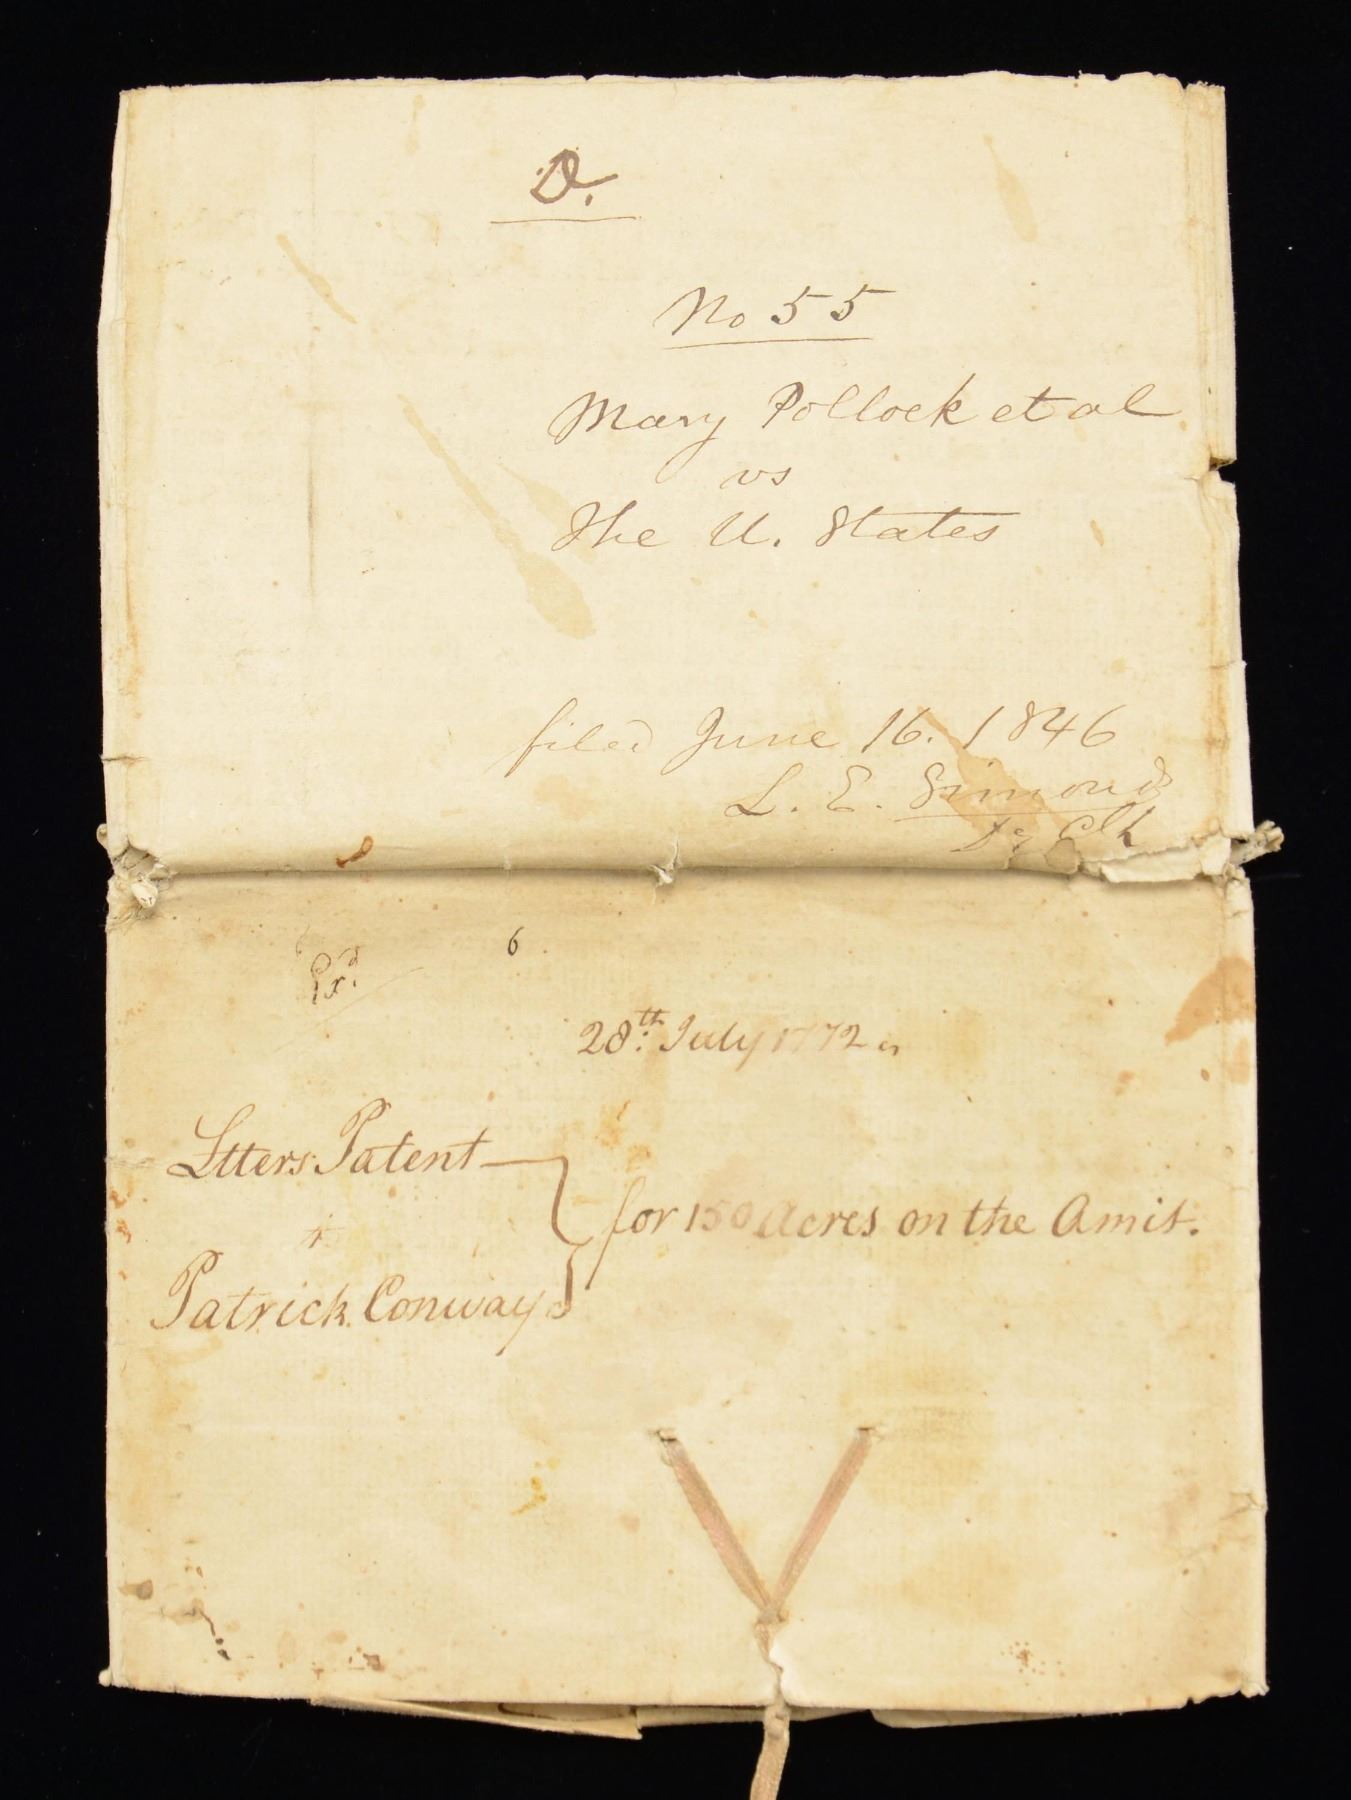 D.
No 55
Mary Pollock et al
vs
The U. States
filed June 16. 1846
L. E. Simonds
Dy Clk
6
28th July 1772
Ltters Patent
for 150 Acres on the Amit.
Patrick Conway